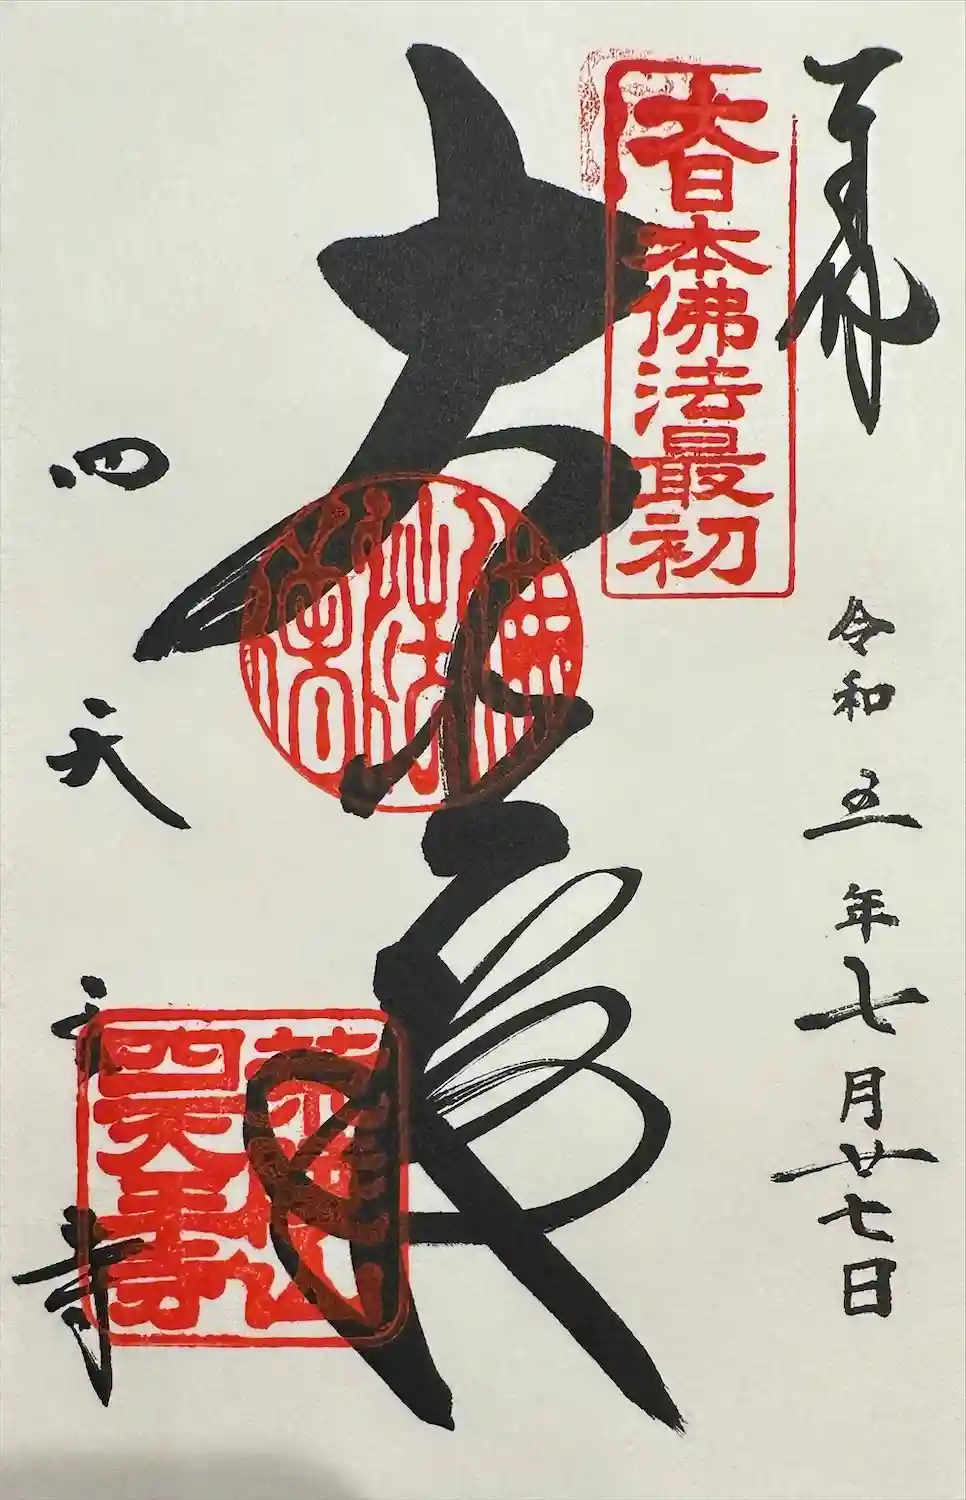 奉拝
令和五年七月廿七日
大日本佛法最初
大悲殿
佛法僧
荒陵山
四天王寺
四天王寺